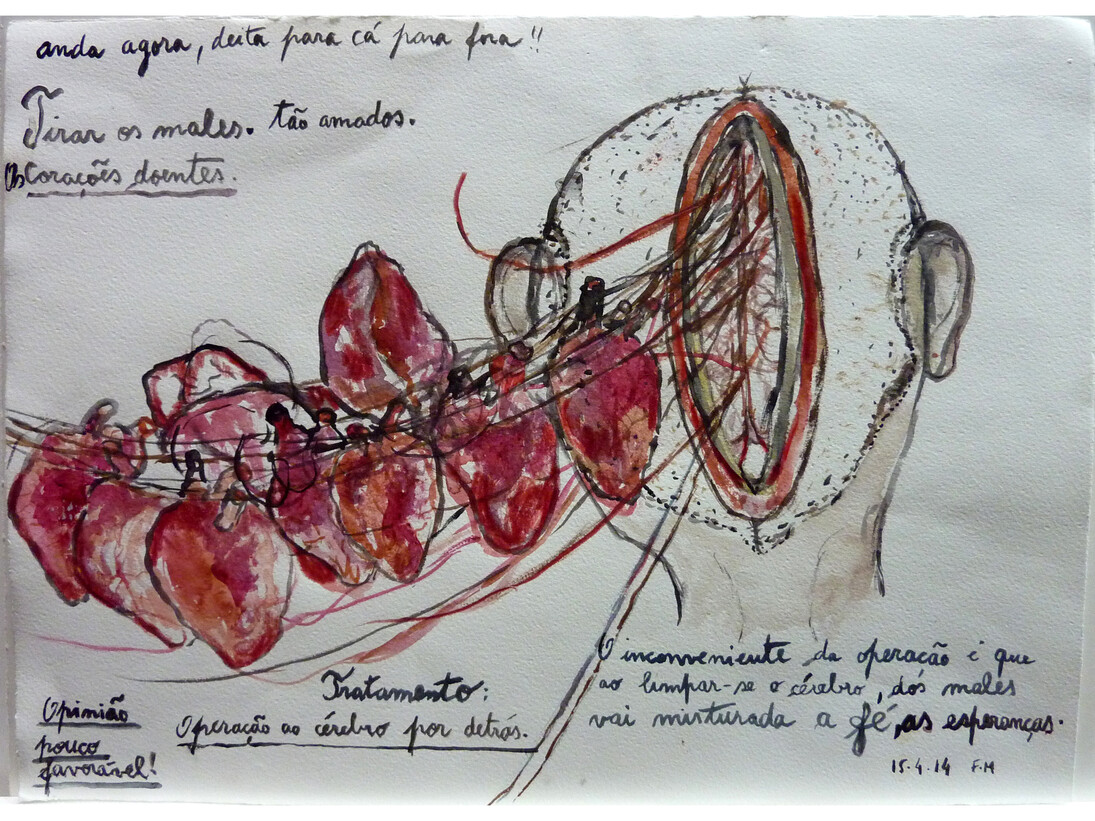 anda agora, deita para cá para fora!!
Tirar os males. tão amados.
Os Corações doentes.
Tratamento:
Operação ao cérebro por detrás.
Opinião
pouco
favorável!
O inconveniente da operação é que
ao limpar-se o cérebro, dos males
vai misturada a fé, as esperanças.
15.4.14 F.M